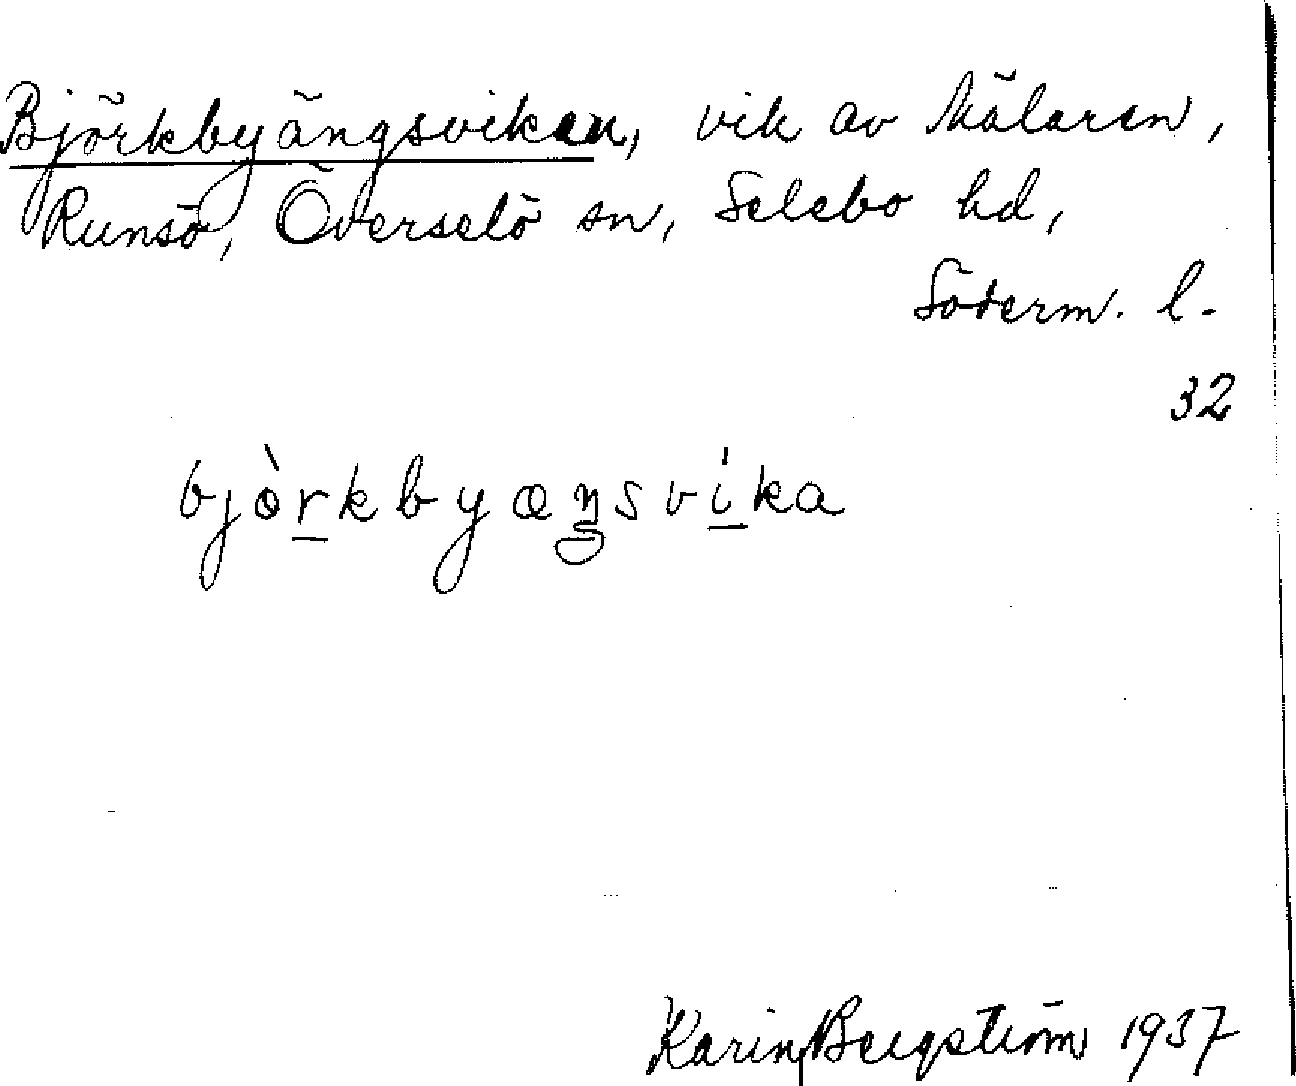 Björkbyängsviken, vik av Mälaren,
Runsö, Överselö sn, Selebo hd,
Söderm. l.
32
bjòrkbyæŋsvíka
Karin Bergström 1937